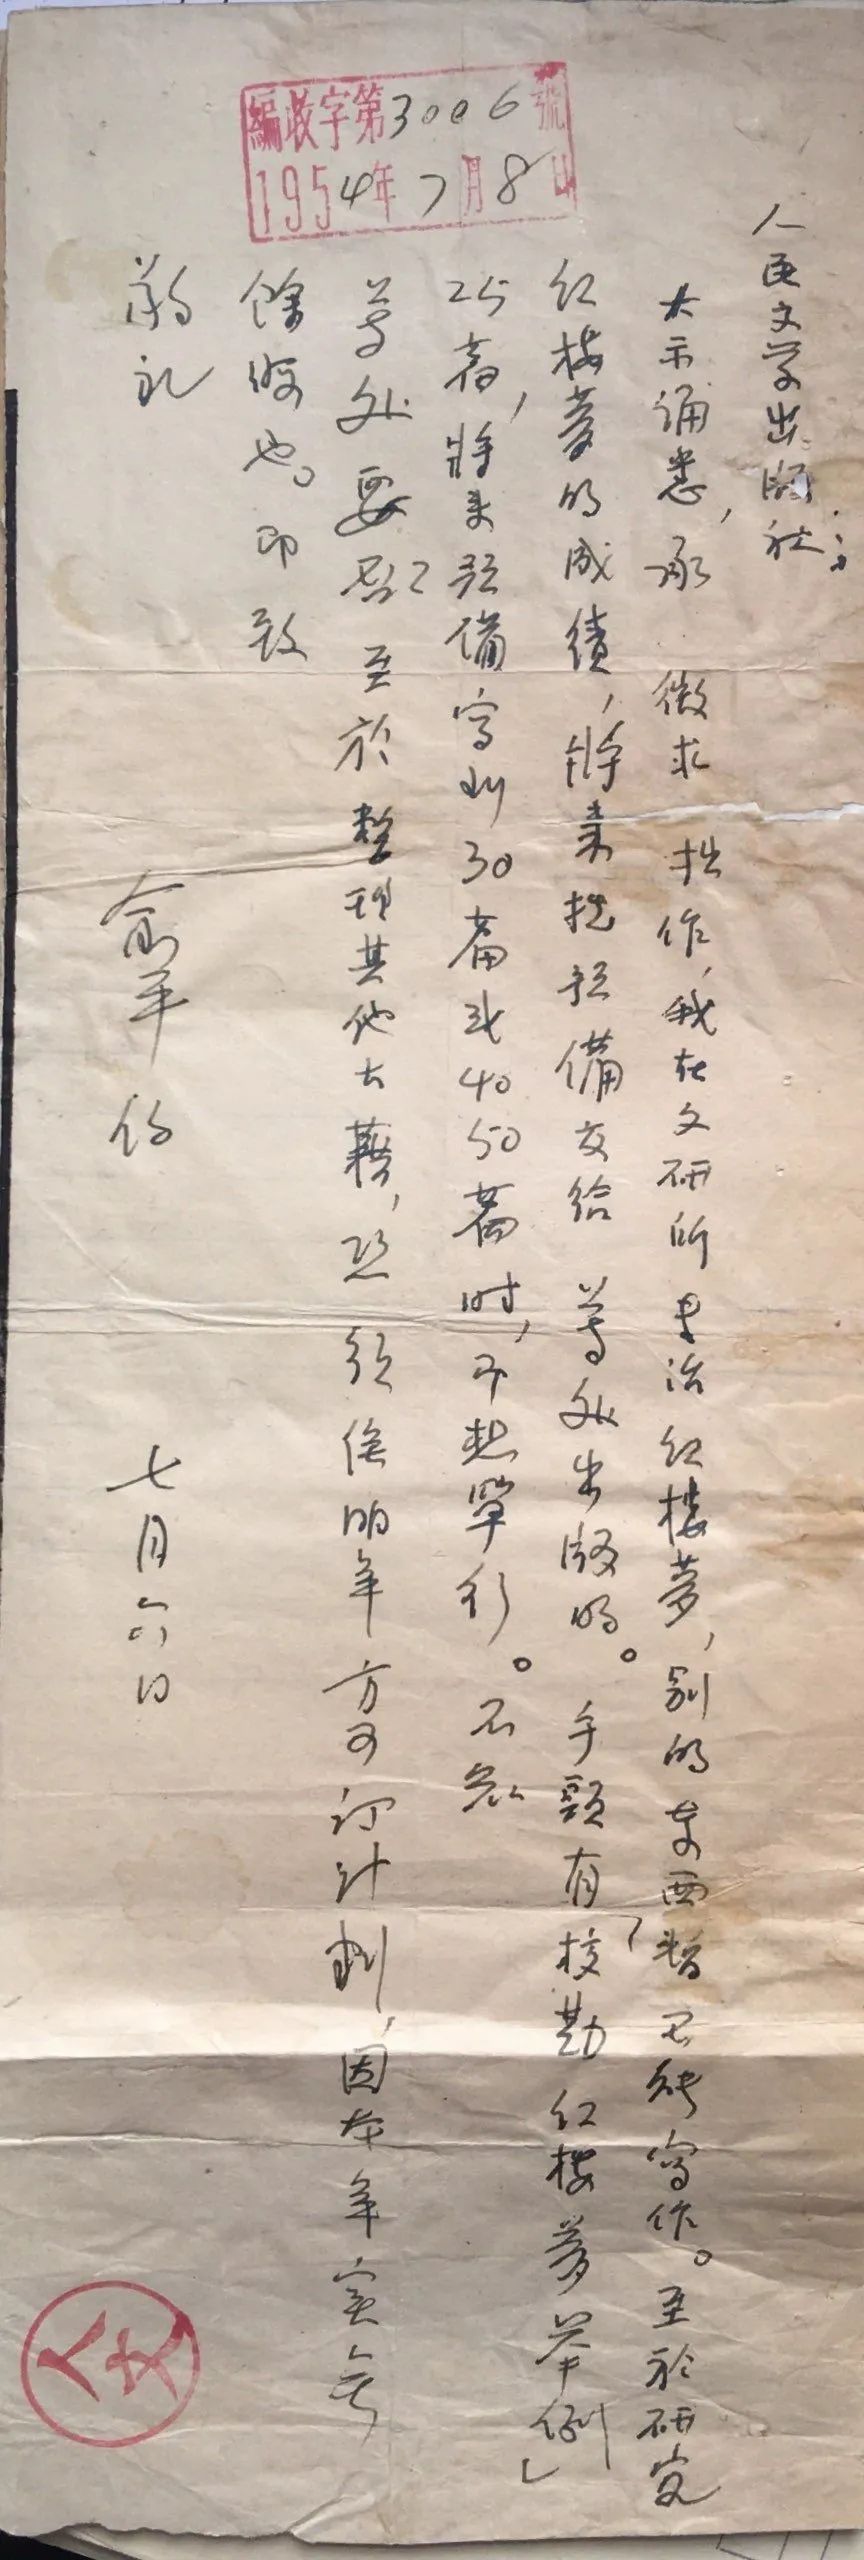 編收字第3006號
1954年7月8日
人民文学出版社：
大示诵悉，承 徵求 拙作，我在文研所专治红楼夢，别的东西暂不能寫作。至於研究
红楼夢的成績，將来拟預備交给 尊处出版的。手頭有「校勘红楼夢举例」
25篇，將来預備寫到30篇或40 50篇时，可想單行。不知
尊处要否？至於整理其他古籍，恐須俟明年方可订计劃，因本年实無
餘暇也。即致
敬礼
俞平伯
七月六日
人文